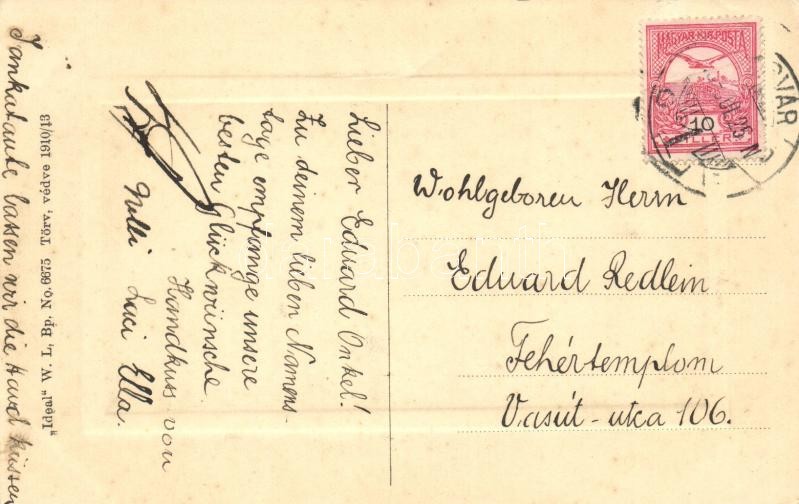 Lieber Eduard Onkel!
Zu deinem lieben Namens-
tage empfange unsere
besten Glückwünsche.
Handkuss von
Luci Ella.
Jankatante lassen wir die Hand küssen
"Ideal" W. L., Bp. No. 6675 Törv. védve 1910/13
MAGYAR KIR. POSTA
10
FILLÉR
Wohlgeboren Herrn
Eduard Redlein
Fehértemplom
Vasút-utca 106.